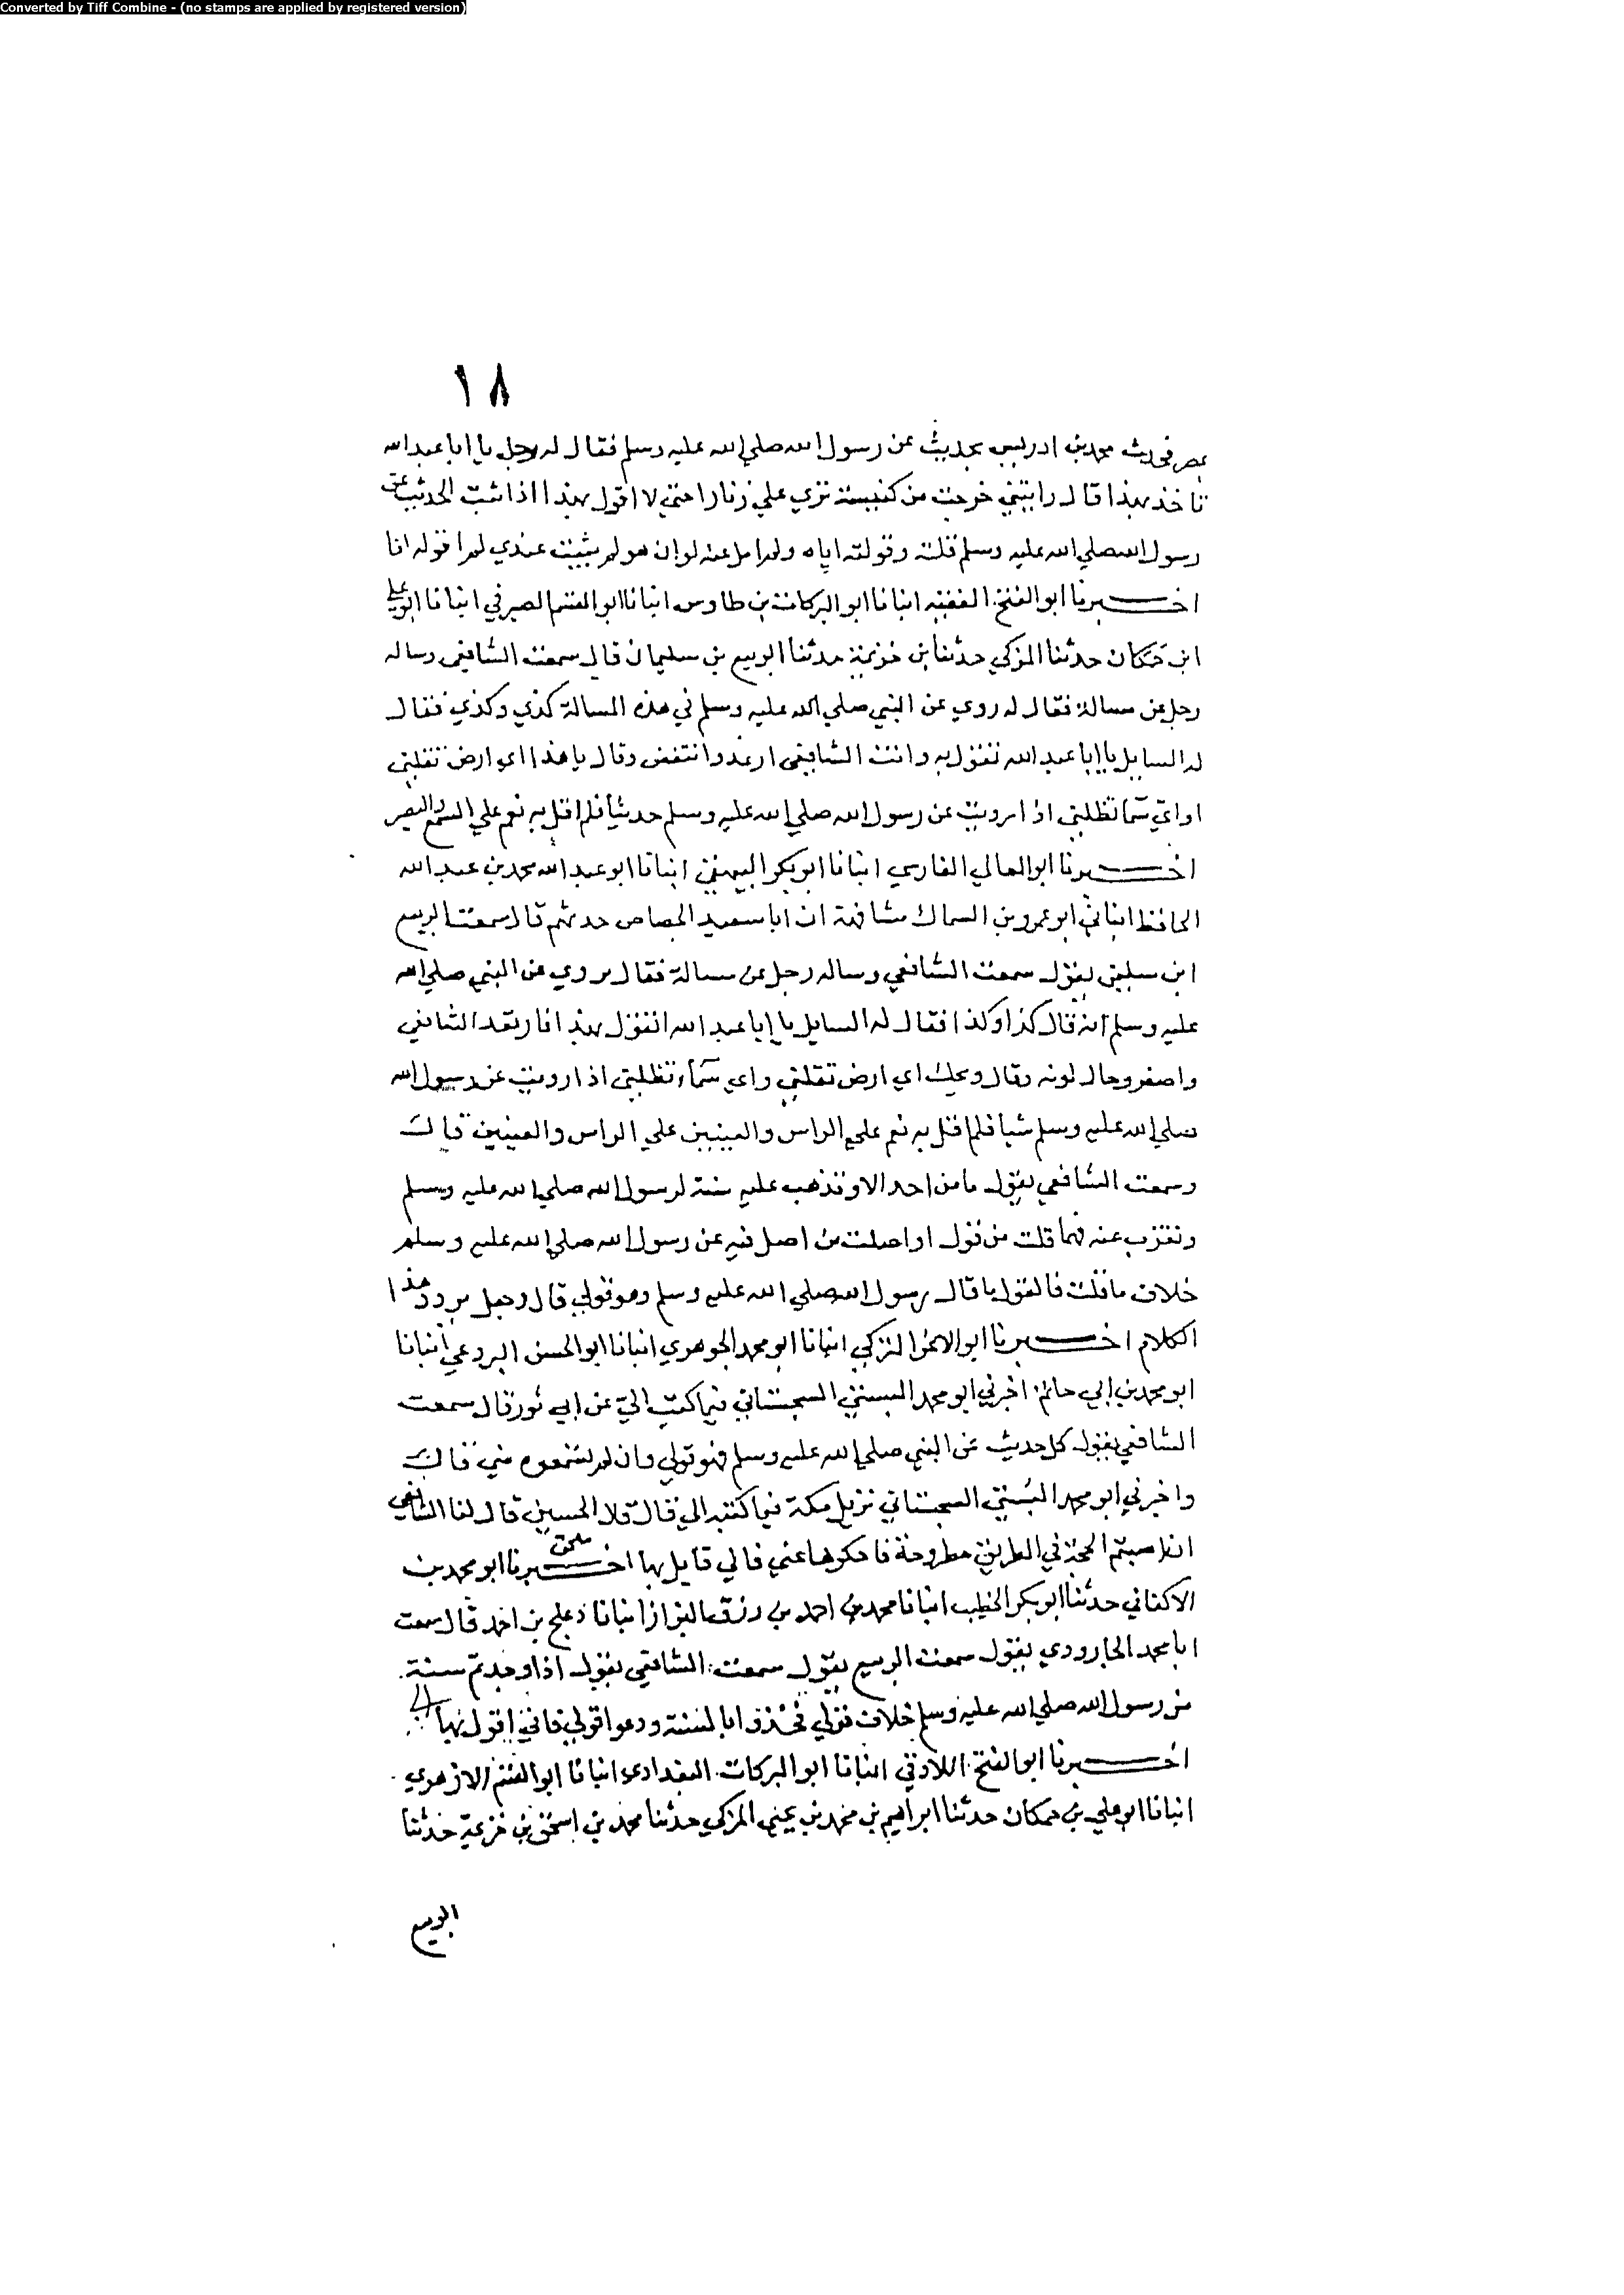 Converted by Tiff Combine - (no stamps are applied by registered version)
١٨
بمصر فحدث محمد بن ادريس بحديث عن رسول الله صلي الله عليه وسلم فقال له رجل يا ابا عبد الله
تاخذ بهذا قال رايتني خرجت من كنيسة تري علي زنارا حتي لا اقول بهذا اذا ثبت الحديث عن
رسول الله صلي الله عليه وسلم قلته وقولته اياه ولم ازل عنه لو ان هو لم يثبت عندي لم اقوله انا
اخبرنا ابو الفتح الفقيه انبانا ابو البركات بن طاوس انبانا ابو القسم الصيرفي انبانا ابو علي
ابن حمكان حدثنا المزكي حدثنا بن خزيمة حدثنا الربيع بن سليمان قال سمعت الشافعي وساله
رجل عن مسالة فقال له روي عن النبي صلي الله عليه وسلم في هذه المسالة كذي وكذي فقال
له السايل يا ابا عبد الله تقول به وانت الشافعي ارعد وانتفض وقال يا هذا اي ارض تقلني
او اي سما تظلني اذا رويت عن رسول الله صلي الله عليه وسلم حديثا فلم اقل به نعم علي السمع والبصر
اخبرنا ابو المعالي الفارسي انبانا ابو بكر البيهقي انبانا ابو عبد الله محمد بن عبد الله
الحافظ انباني ابو عمرو بن السماك مشافهة ان ابا سعيد الجصاص حدثهم قال سمعت الربيع
ابن سليمن يقول سمعت الشافعي وساله رجل عن مسالة فقال يروي عن النبي صلي الله
عليه وسلم انه قال كذا وكذا فقال له السايل يا ابا عبد الله اتقول بهذا فارتعد الشافعي
واصفر وحال لونه وقال ويحك اي ارض تقلني واي سماء تظلني اذا رويت عن رسول الله
صلي الله عليه وسلم شيا فلم اقل به نعم علي الراس والعينين علي الراس والعينين قال
وسمعت الشافعي يقول ما من احد الا وتذهب عليه سنة لرسول الله صلي الله عليه وسلم
وتعزب عنه فما قلت من قول او اصلت من اصل فيه عن رسول الله صلي الله عليه وسلم
خلاف ما قلت فالقول ما قال رسول الله صلي الله عليه وسلم وهو قولي قال وجعل يردد هذا
الكلام اخبرنا ابو الاعز التركي انبانا ابو محمد الجوهري انبانا ابو الحسن البردعي انبانا
ابو محمد بن ابي حاتم اخبرني ابو محمد البستي السجستاني فيما كتب الي عن ابي ثور قال سمعت
الشافعي يقول كل حديث عن النبي صلي الله عليه وسلم فهو قولي وان لم تسمعوه مني قال
واخبرني ابو محمد البستي السجستاني نزيل مكة فيما كتبه الي قال قال الحسين قال لنا الشافعي
ان اصبتم الحجة في الطريق مطروحة فاحكوها عني فاني قايل بها اخبرنا ابو محمد بن
الاكفاني حدثنا ابو بكر الخطيب انبانا محمد بن احمد بن رزق البزاز انبانا دعلج بن احمد قال سمعت
ابا محمد الجارودي يقول سمعت الربيع يقول سمعت الشافعي يقول اذا وجدتم سنة
من رسول الله صلي الله عليه وسلم خلاف قولي فخذوا بالسنة ودعوا قولي فاني اقول بها
اخبرنا ابو الفتح اللاذقي انبانا ابو البركات البغدادي انبانا ابو القسم الازهري
انبانا ابو علي بن حمكان حدثنا ابراهيم بن محمد بن يحيي المزكي حدثنا محمد بن اسحق بن خزيمة حدثنا
الربيع